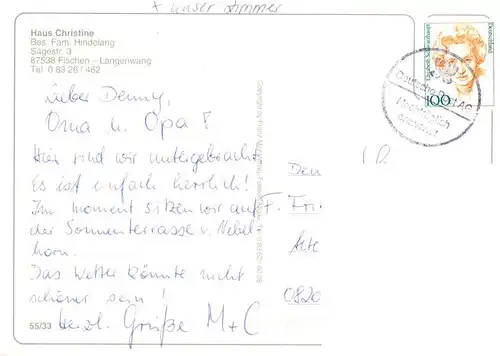 x unser Zimmer
Haus Christine
Bes. Fam. Hindelang
Sägestr. 3
87538 Fischen – Langenwang
Tel. 0 83 26 / 462
Lieber Denny,
Oma u. Opa!
Hier sind wir untergebracht.
Es ist einfach herrlich!
Im Moment sitzen wir auf
der Sonnenterrasse v. Nebel-
horn.
Das Wetter könnte nicht
schöner sein!
herzl. Grüße M+C
55/33
Deutschland
100
Deutsche Post AG
Nachträglich
entwertet
Den
F. Fri
Alte
0820